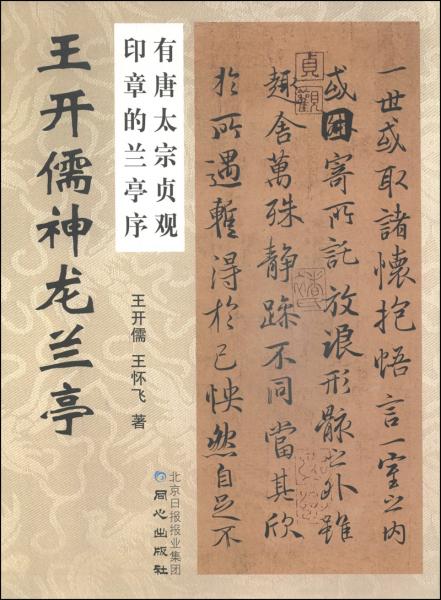 王开儒神龙兰亭
有唐太宗贞观
印章的兰亭序
王开儒 王怀飞 著
北京日报报业集团
同心出版社
貞觀
一世或取諸懷抱悟言一室之内
或因寄所託放浪形骸之外雖
趣舍萬殊静躁不同當其欣
於所遇暫得於己怏然自足不